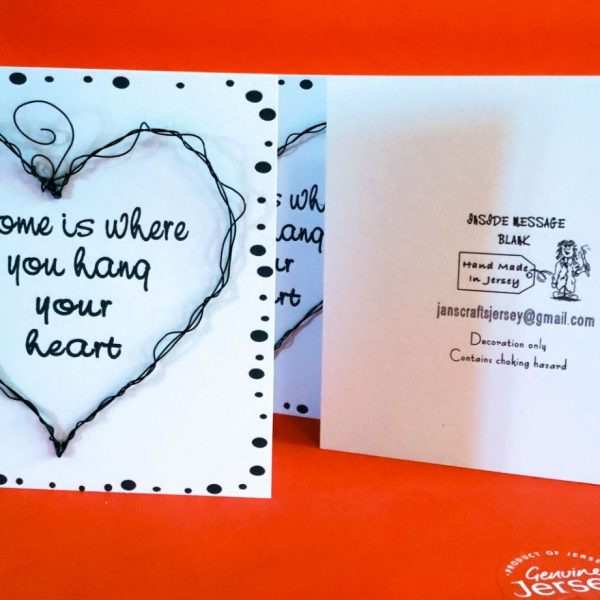 ome is where
you hang
your
heart
s wh
ang
ur
rt
INSIDE MESSAGE
BLANK
Hand Made
In Jersey
janscraftsjersey@gmail.com
Decoration only
Contains choking hazard
PRODUCT OF JERSE
Genuine
Jerse